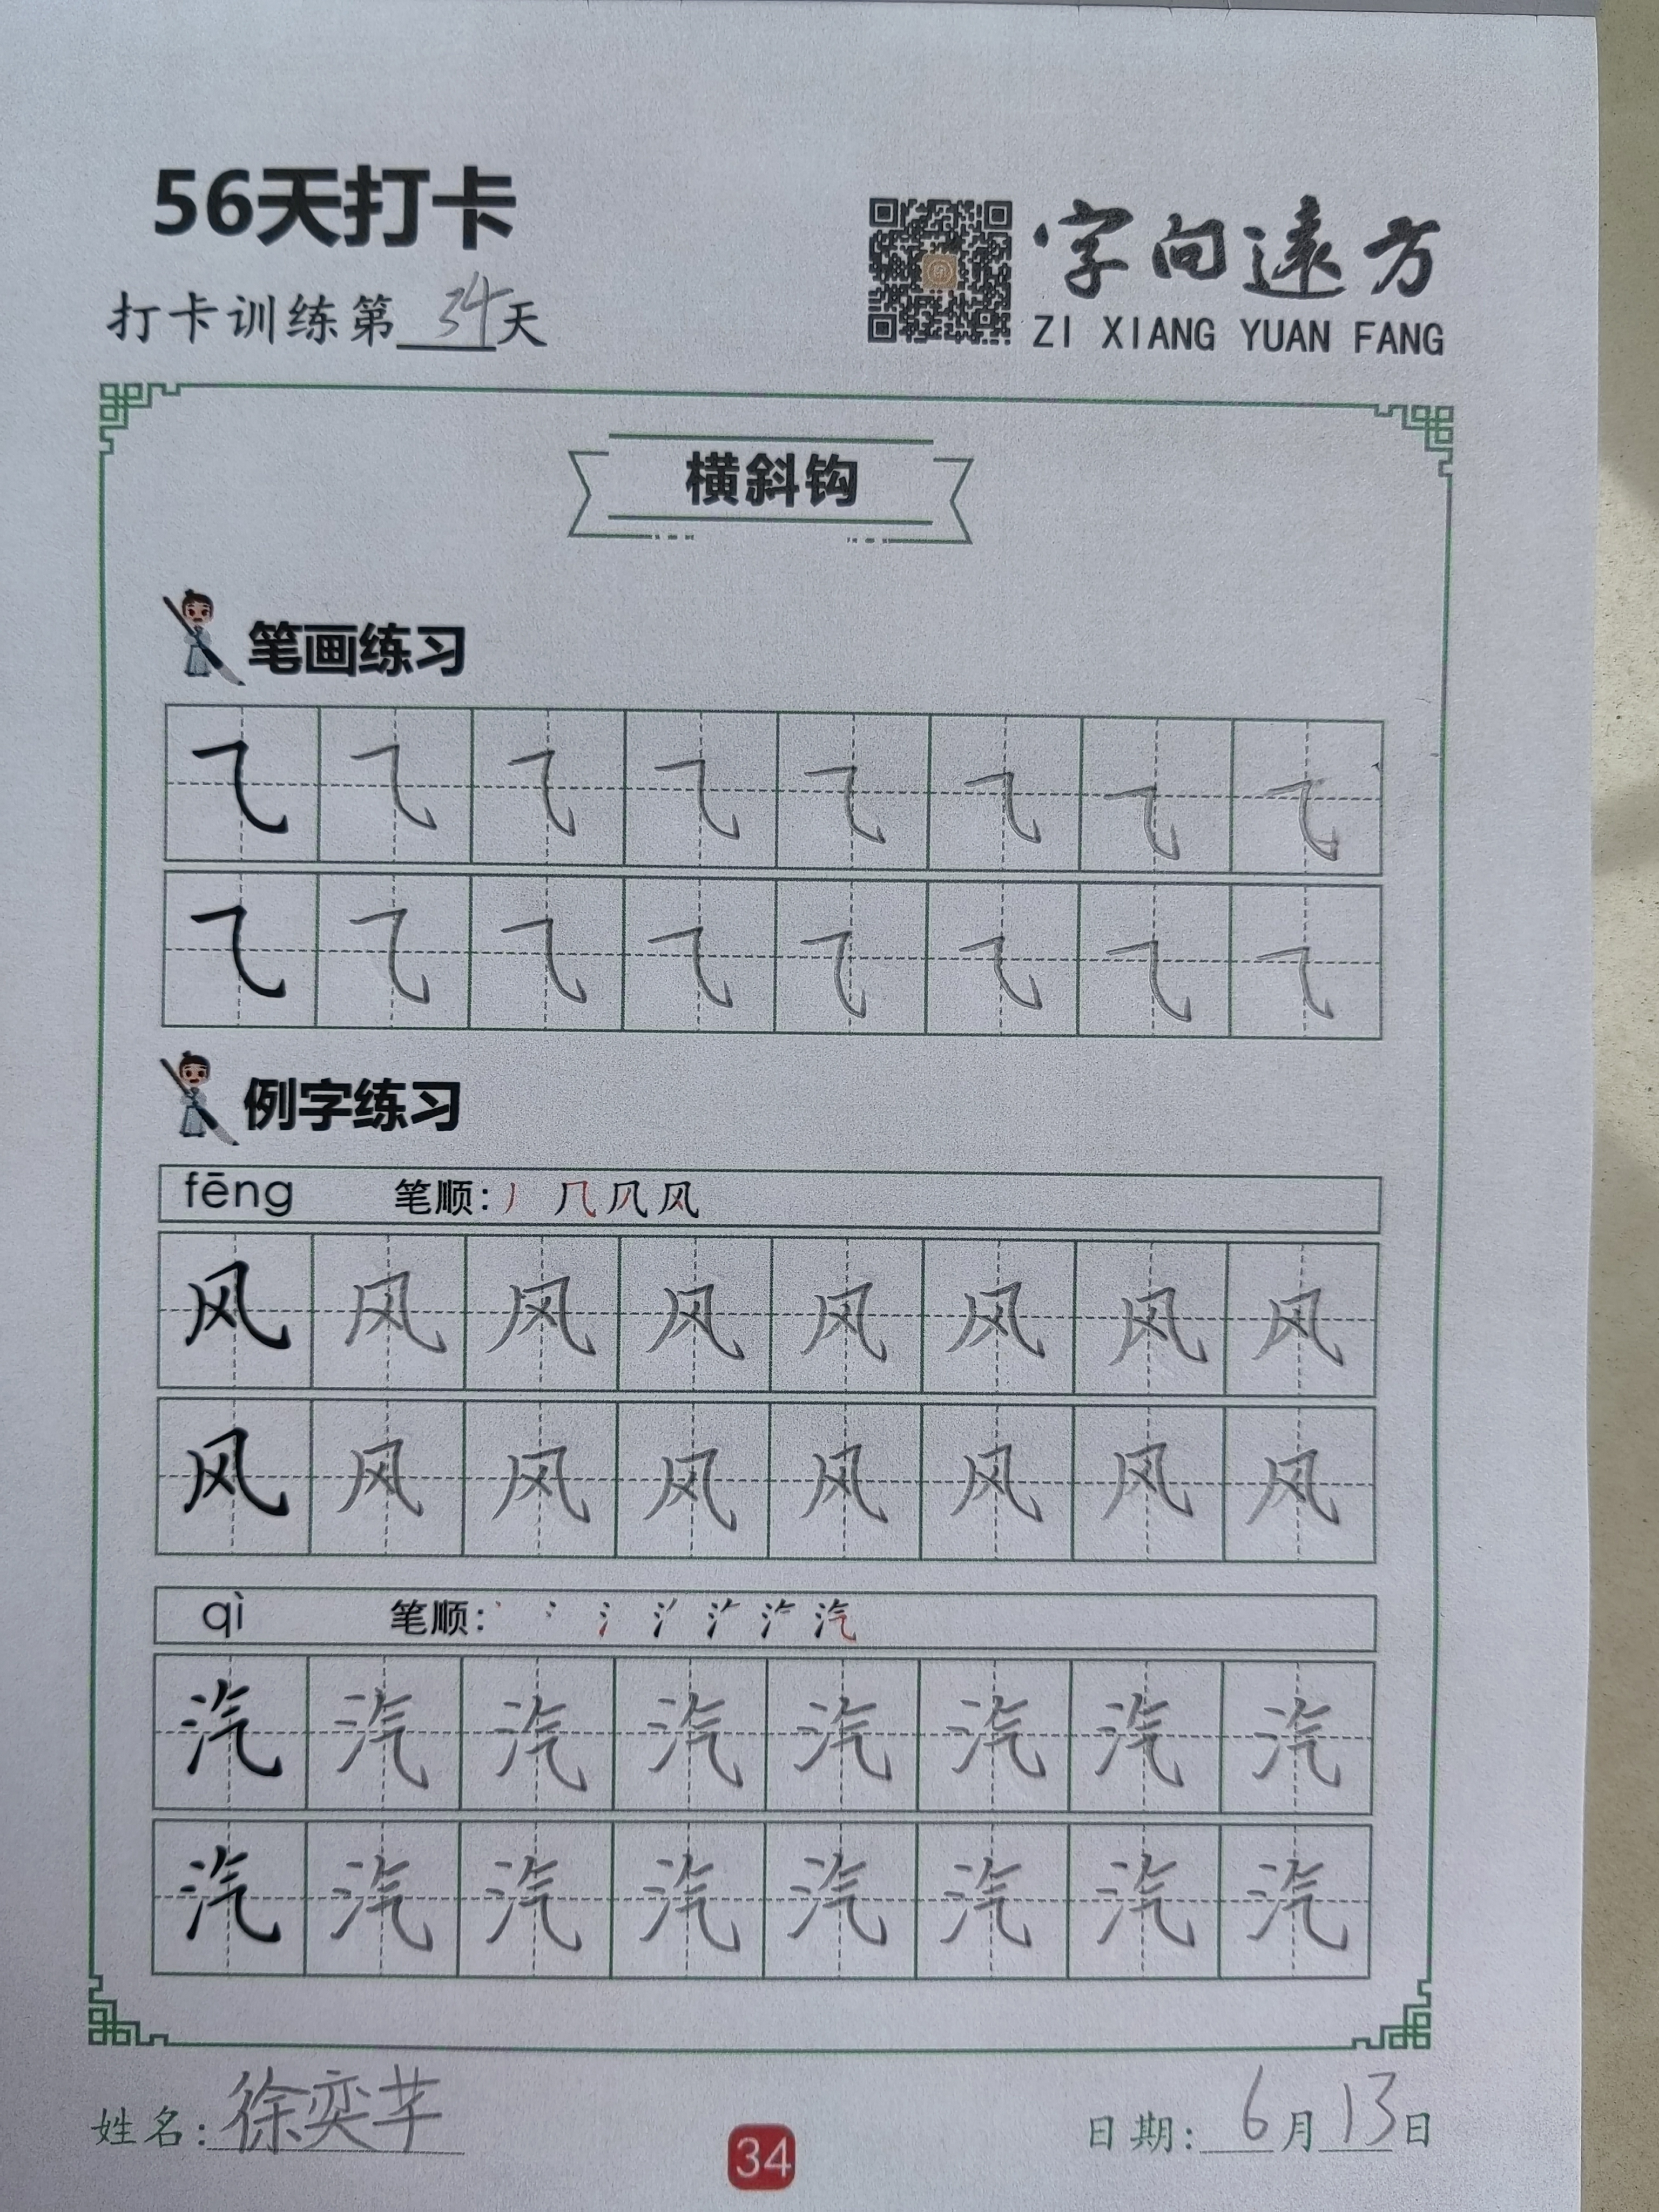 56天打卡
字向遠方
打卡训练第34天
ZI XIANG YUAN FANG
横斜钩
笔画练习
⺄ ⺄ ⺄ ⺄ ⺄ ⺄ ⺄ ⺄
⺄ ⺄ ⺄ ⺄ ⺄ ⺄ ⺄ ⺄
例字练习
fēng 笔顺：丿 几 风
风 风 风 风 风 风 风 风
风 风 风 风 风 风 风 风
qì 笔顺：丶 冫 氵 汽
汽 汽 汽 汽 汽 汽 汽 汽
汽 汽 汽 汽 汽 汽 汽 汽
姓名：徐奕芊
34
日期：6月13日